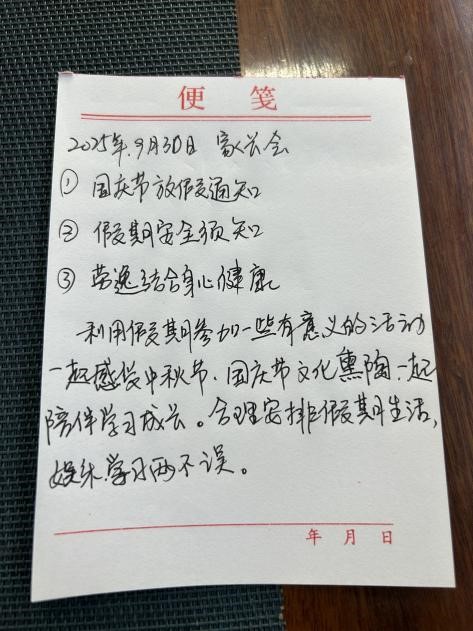 便 笺
2025年.9月30日 家长会
① 国庆节放假通知
② 假期安全须知
③ 劳逸结合身心健康
利用假期参加一些有意义的活动
一起感受中秋节、国庆节文化熏陶.一起
陪伴学习成长。合理安排假期生活,
娱乐.学习两不误。
年 月 日